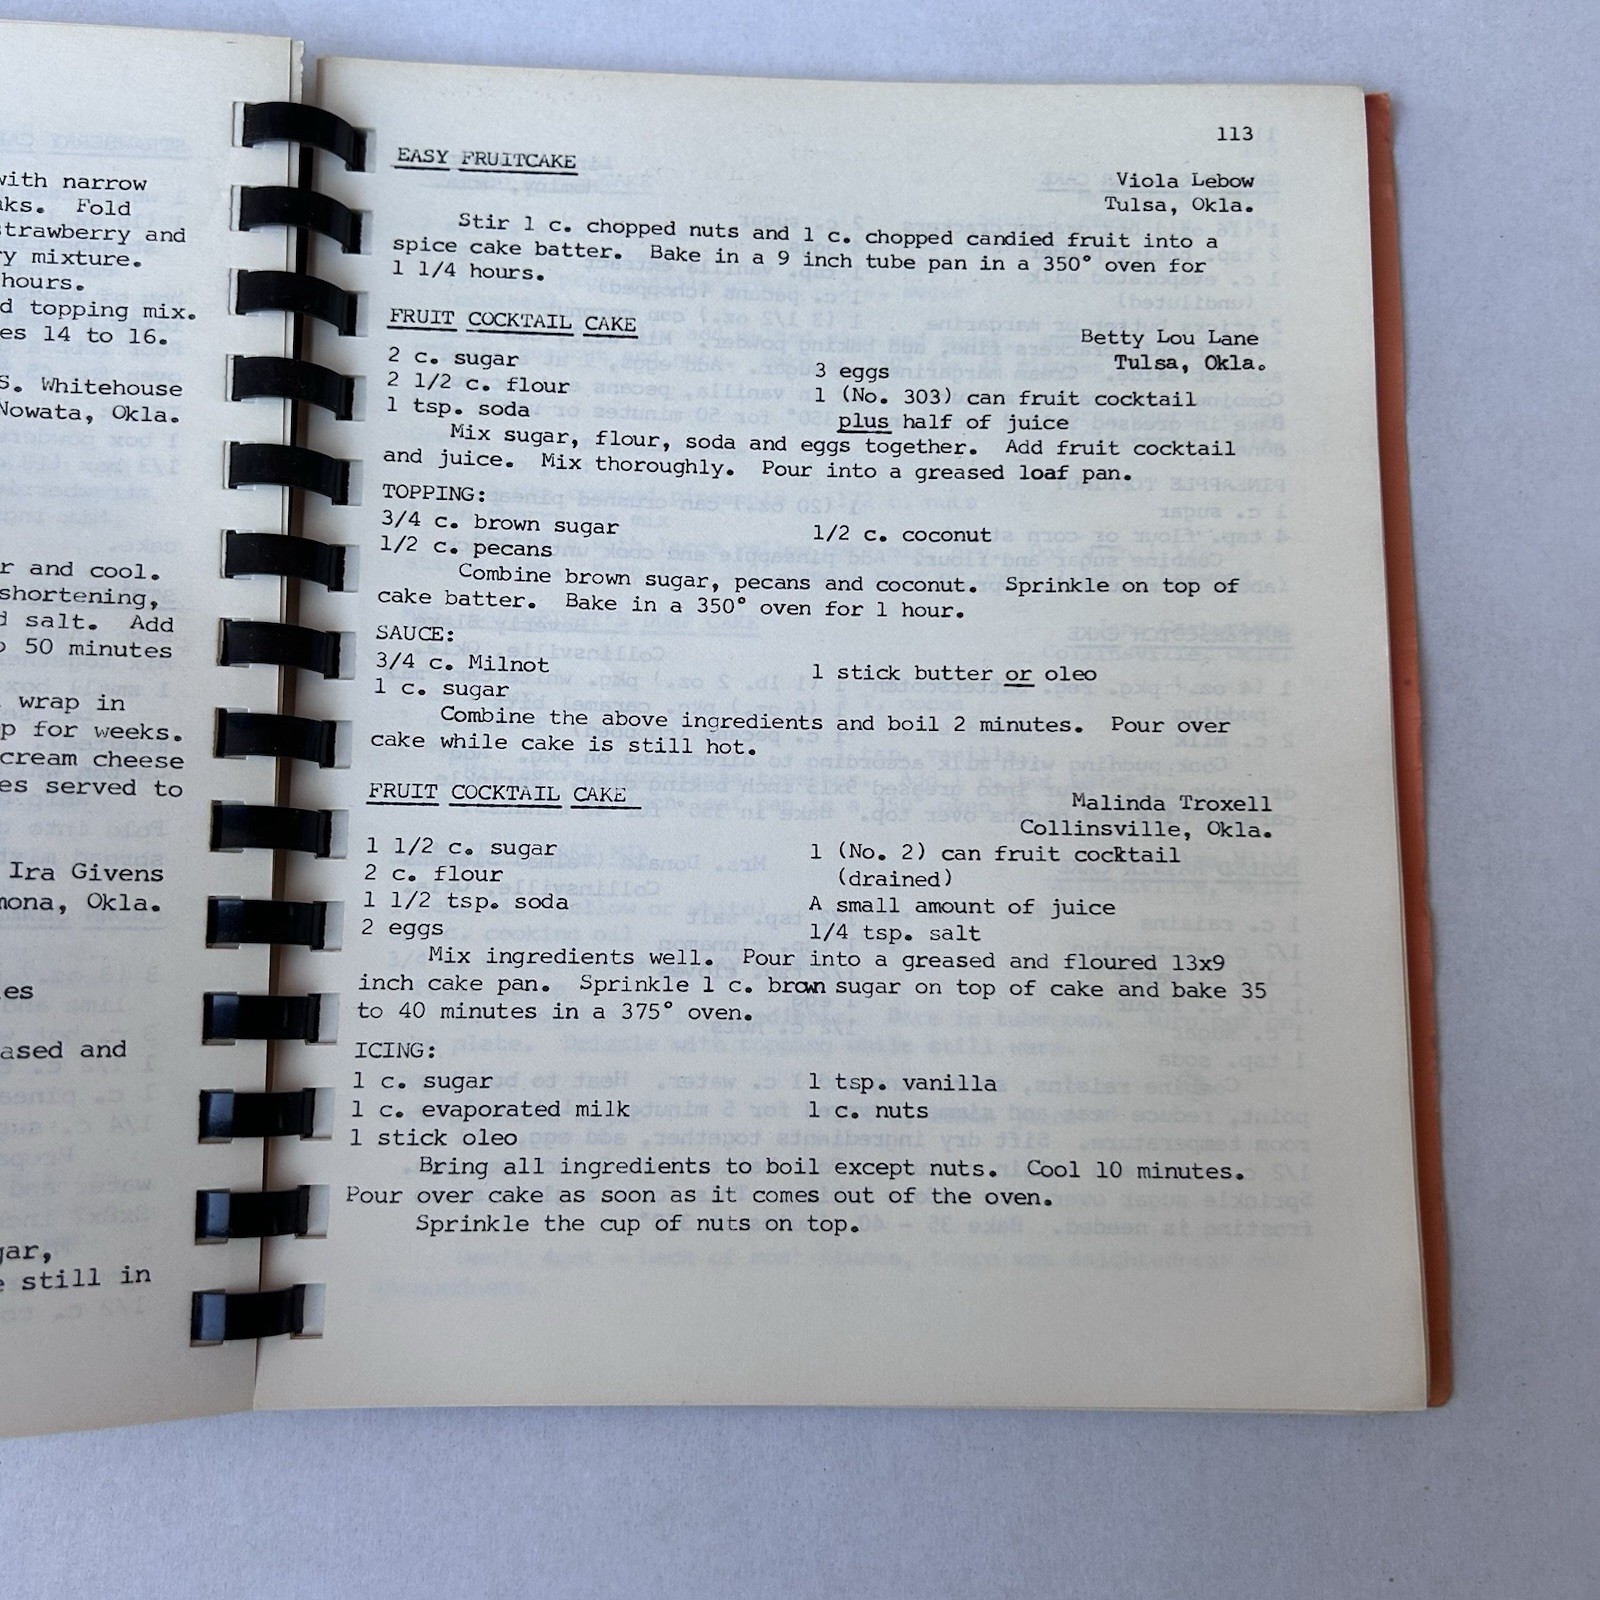 with narrow
Fold
strawberry and
mixture.
hours.
topping mix.
14 to 16.
S. Whitehouse
Nowata, Okla.
and cool.
shortening,
salt. Add
50 minutes
wrap in
for weeks.
cream cheese
served to
Ira Givens
Okla.
and
still in
113
EASY FRUITCAKE
Viola Lebow
Tulsa, Okla.
Stir 1 c. chopped nuts and 1 c. chopped candied fruit into a
spice cake batter. Bake in a 9 inch tube pan in a 350° oven for
1 1/4 hours.
FRUIT COCKTAIL CAKE
Betty Lou Lane
Tulsa, Okla.
2 c. sugar
2 1/2 c. flour
1 tsp. soda
3 eggs
1 (No. 303) can fruit cocktail
plus half of juice
Mix sugar, flour, soda and eggs together. Add fruit cocktail
and juice. Mix thoroughly. Pour into a greased loaf pan.
TOPPING:
3/4 c. brown sugar
1/2 c. pecans
1/2 c. coconut
Combine brown sugar, pecans and coconut. Sprinkle on top of
cake batter. Bake in a 350° oven for 1 hour.
SAUCE:
3/4 c. Milnot
1 c. sugar
1 stick butter or oleo
Combine the above ingredients and boil 2 minutes. Pour over
cake while cake is still hot.
FRUIT COCKTAIL CAKE
Malinda Troxell
Collinsville, Okla.
1 1/2 c. sugar
2 c. flour
1 1/2 tsp. soda
2 eggs
1 (No. 2) can fruit cocktail
(drained)
A small amount of juice
1/4 tsp. salt
Mix ingredients well. Pour into a greased and floured 13x9
inch cake pan. Sprinkle 1 c. brown sugar on top of cake and bake 35
to 40 minutes in a 375° oven.
ICING:
1 c. sugar
1 c. evaporated milk
1 stick oleo
1 tsp. vanilla
1 c. nuts
Bring all ingredients to boil except nuts. Cool 10 minutes.
Pour over cake as soon as it comes out of the oven.
Sprinkle the cup of nuts on top.